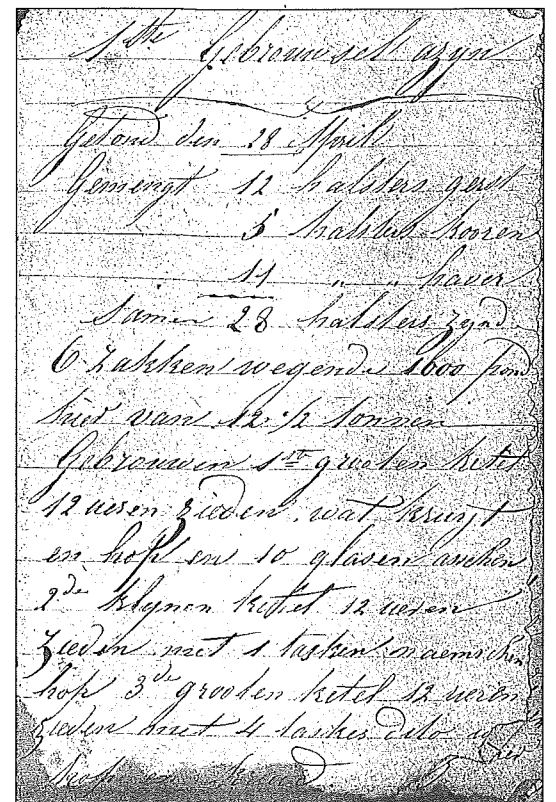 1ste Gebrouwsel azyn
Getond den 28 April
Gemengt 12 halsters gerst
5 halsters koren
11 " " haver
Samen 28 halsters zynd
6 zakken wegende 1600 pond
hier van 12 1/2 tonnen
Gebrouwen 1ste grooten ketel
12 ueren zieden wat kruyt
en hop en 10 glasen asschen
2de klynen ketel 12 ueren
zieden met 1 tasken naemschen
hop 3de grooten ketel 12 ueren
zieden met 4 taskes dito
hop en